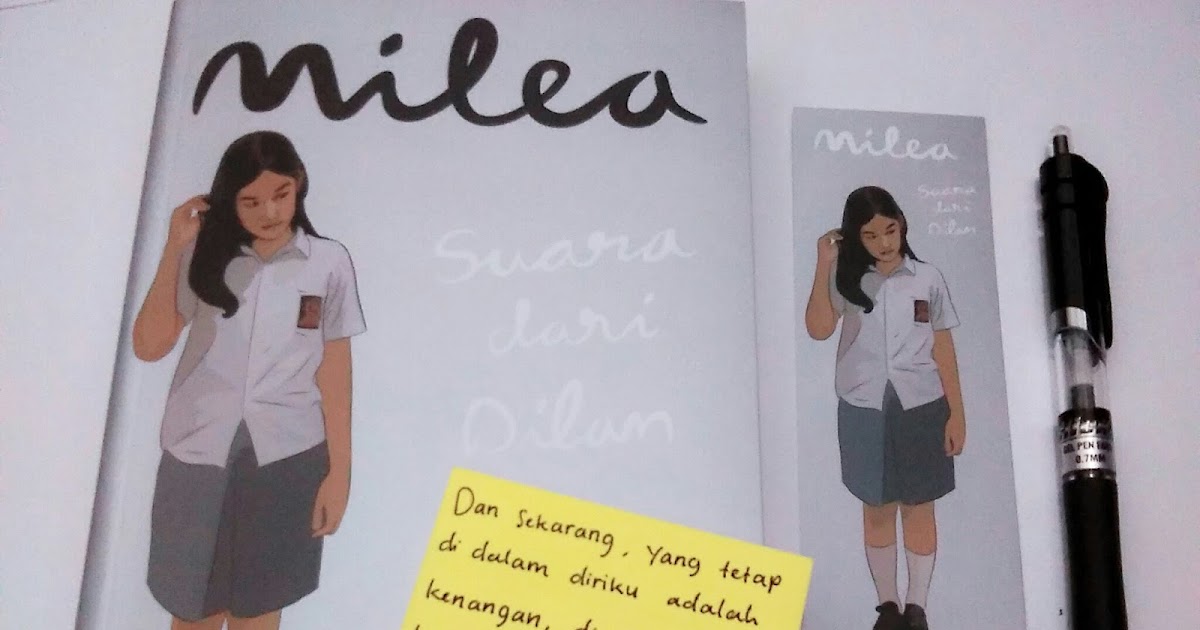 milea
Suara
dari
Dilan
Dan sekarang, yang tetap
di dalam diriku adalah
kenangan,
milea
Suara
dari
Dilan
GEL PEN
0.7MM